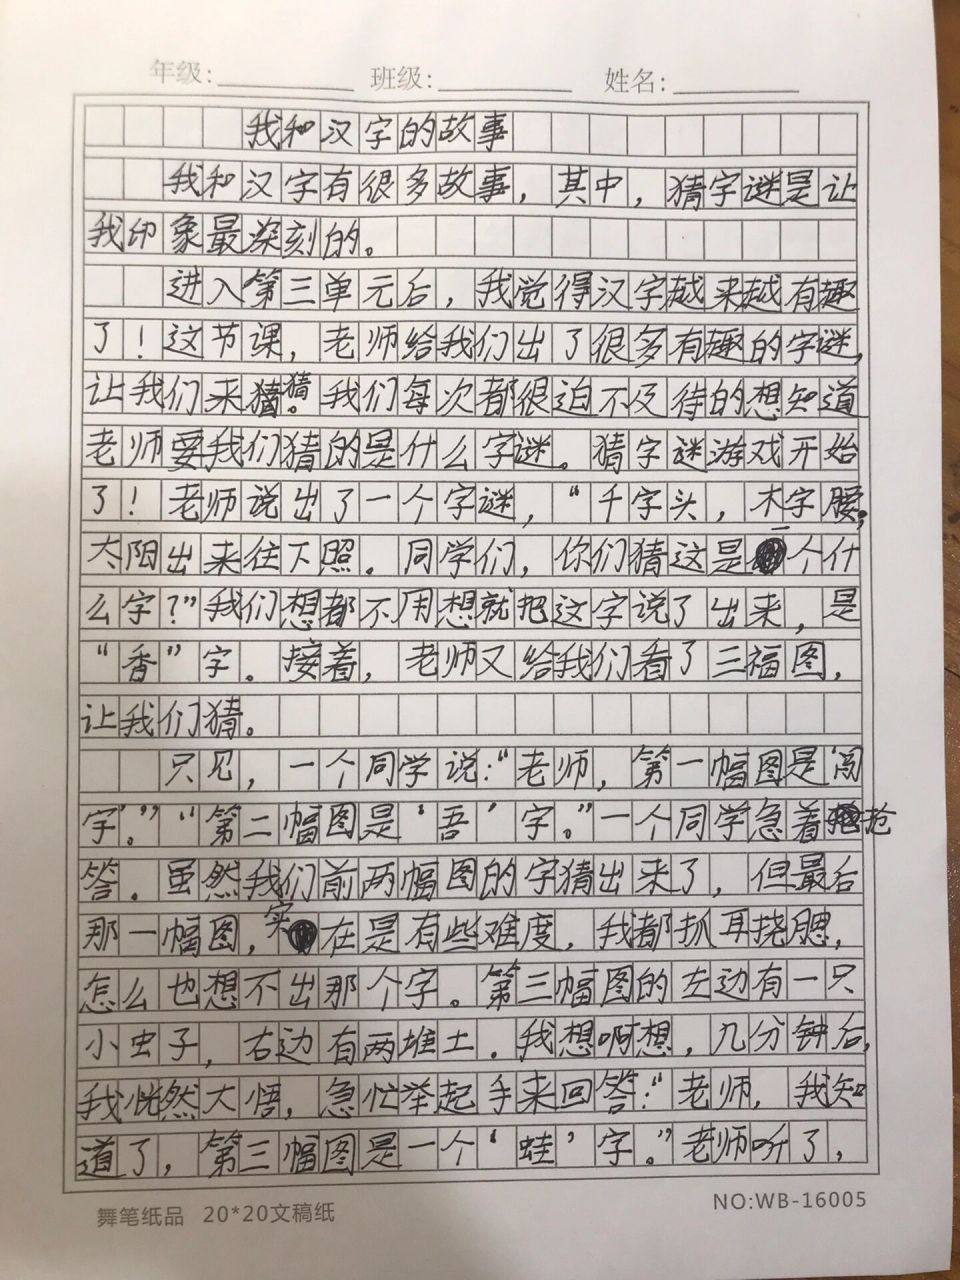 年级: 班级: 姓名:
我和汉字的故事
我和汉字有很多故事，其中，猜字谜是让
我印象最深刻的。
进入第三单元后，我觉得汉字越来越有趣
了！这节课，老师给我们出了很多有趣的字谜，
让我们来猜猜。我们每次都很迫不及待的想知道
老师要我们猜的是什么字谜。猜字谜游戏开始
了！老师说出了一个字谜，“千字头，木字腰，
太阳出来往下照。同学们，你们猜这是个什
么字？”我们想都不用想就把这字说了出来，是
“香”字。接着，老师又给我们看了三福图，
让我们猜。
只见，一个同学说：“老师，第一幅图是‘闯
字’。”“第二幅图是‘吾’字。”一个同学急着抢
答。虽然我们前两幅图的字猜出来了，但最后
那一幅图，实在是有些难度，我都抓耳挠腮，
怎么也想不出那个字。第三幅图的左边有一只
小虫子，右边有两堆土。我想啊想，几分钟后，
我恍然大悟，急忙举起手来回答：“老师，我知
道了，第三幅图是一个‘蛙’字。”老师听了，
舞笔纸品 20*20文稿纸 NO:WB-16005